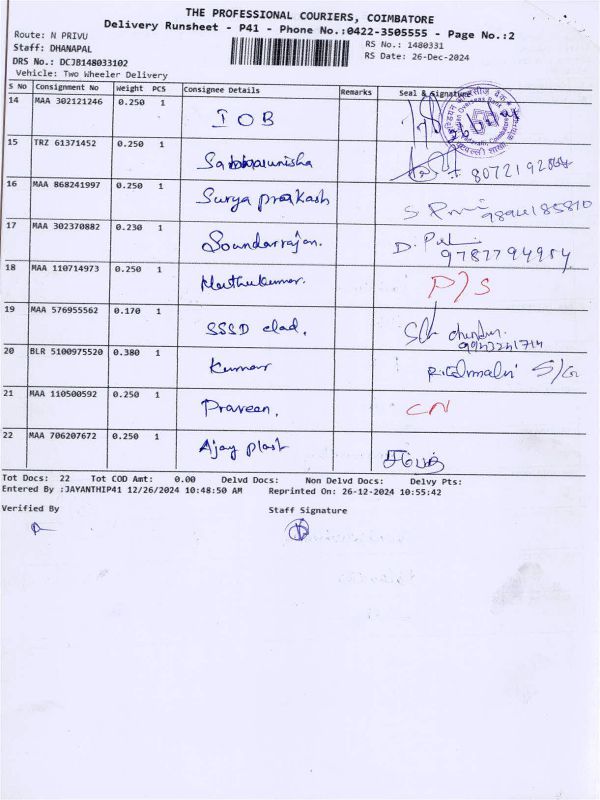 THE PROFESSIONAL COURIERS, COIMBATORE
Delivery Runsheet - P41 - Phone No.:0422-3505555 - Page No.:2
Route: N PRIVU
RS No.: 1480331
Staff: DHANAPAL
RS Date: 26-Dec-2024
DRS No.: DCJB148033102
Vehicle: Two Wheeler Delivery
S No Consignment No Weight PCS Consignee Details Remarks Seal & Signature
14 MAA 302121246 0.250 1 IOB
15 TRZ 61371452 0.250 1
16 MAA 868241997 0.250 1 Surya prakash 9894185810
17 MAA 302370882 0.230 1 Soundarrajan. D. 9787794954
18 MAA 110714973 0.250 1 Muthukumar. P/S
19 MAA 576955562 0.170 1 SSSD clad. 9943241714
20 BLR 5100975520 0.380 1 Kumar S/G
21 MAA 110500592 0.250 1 Praveen. CN
22 MAA 706207672 0.250 1 Ajay plast
Tot Docs: 22 Tot COD Amt: 0.00 Delvd Docs: Non Delvd Docs: Delvy Pts:
Entered By :JAYANTHIP41 12/26/2024 10:48:50 AM Reprinted On: 26-12-2024 10:55:42
Verified By Staff Signature